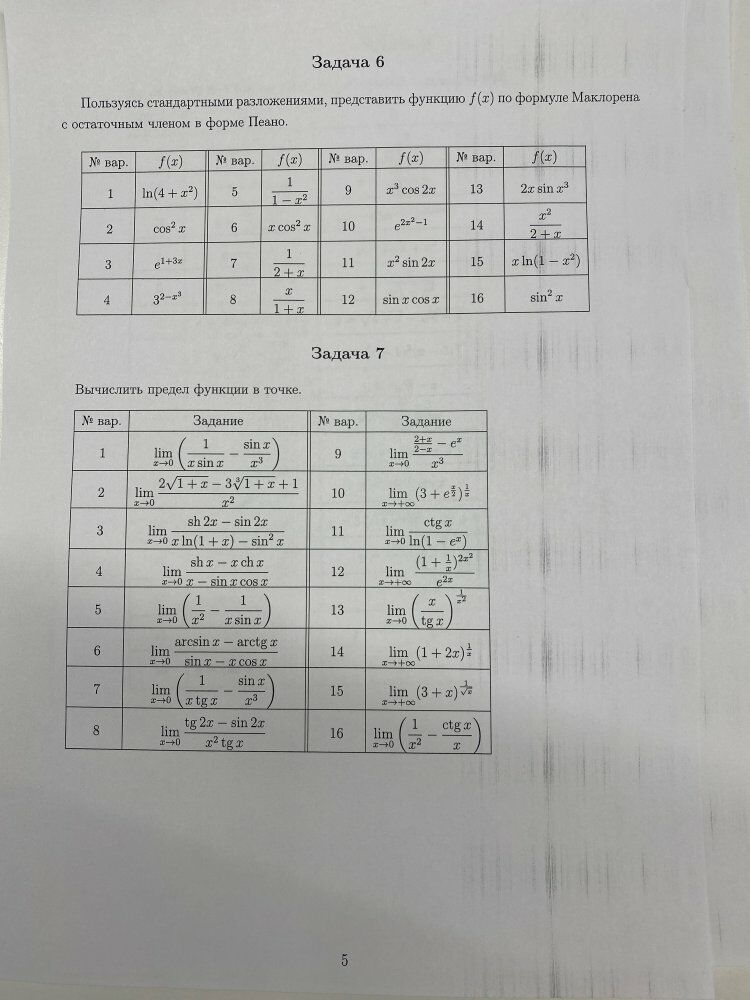 Задача 6
Пользуясь стандартными разложениями, представить функцию f(x) по формуле Маклорена
с остаточным членом в форме Пеано.
№ вар. f(x) № вар. f(x) № вар. f(x) № вар. f(x)
1 ln(4 + x²) 5 1/(1 − x²) 9 x³ cos 2x 13 2x sin x³
2 cos² x 6 x cos² x 10 e^(2x²−1) 14 x²/(2 + x)
3 e^(1+3x) 7 1/(2 + x) 11 x² sin 2x 15 x ln(1 − x²)
4 3^(2−x³) 8 x/(1 + x) 12 sin x cos x 16 sin² x
Задача 7
Вычислить предел функции в точке.
№ вар. Задание № вар. Задание
1 lim x→0 (1/(x sin x) − sin x/x³) 9 lim x→0 ((2+x)/(2−x) − e^x)/x³
2 lim x→0 (2√(1 + x) − 3∛(1 + x) + 1)/x² 10 lim x→+∞ (3 + e^(x/2))^(1/x)
3 lim x→0 (sh 2x − sin 2x)/(x ln(1 + x) − sin² x) 11 lim x→0 ctg x/ln(1 − e^x)
4 lim x→0 (sh x − x ch x)/(x − sin x cos x) 12 lim x→+∞ (1 + 1/x)^(2x²)/e^(2x)
5 lim x→0 (1/x² − 1/(x sin x)) 13 lim x→0 (x/tg x)^(1/x²)
6 lim x→0 (arcsin x − arctg x)/(sin x − x cos x) 14 lim x→+∞ (1 + 2x)^(1/x)
7 lim x→0 (1/(x tg x) − sin x/x³) 15 lim x→+∞ (3 + x)^(1/√x)
8 lim x→0 (tg 2x − sin 2x)/(x² tg x) 16 lim x→0 (1/x² − ctg x/x)
5